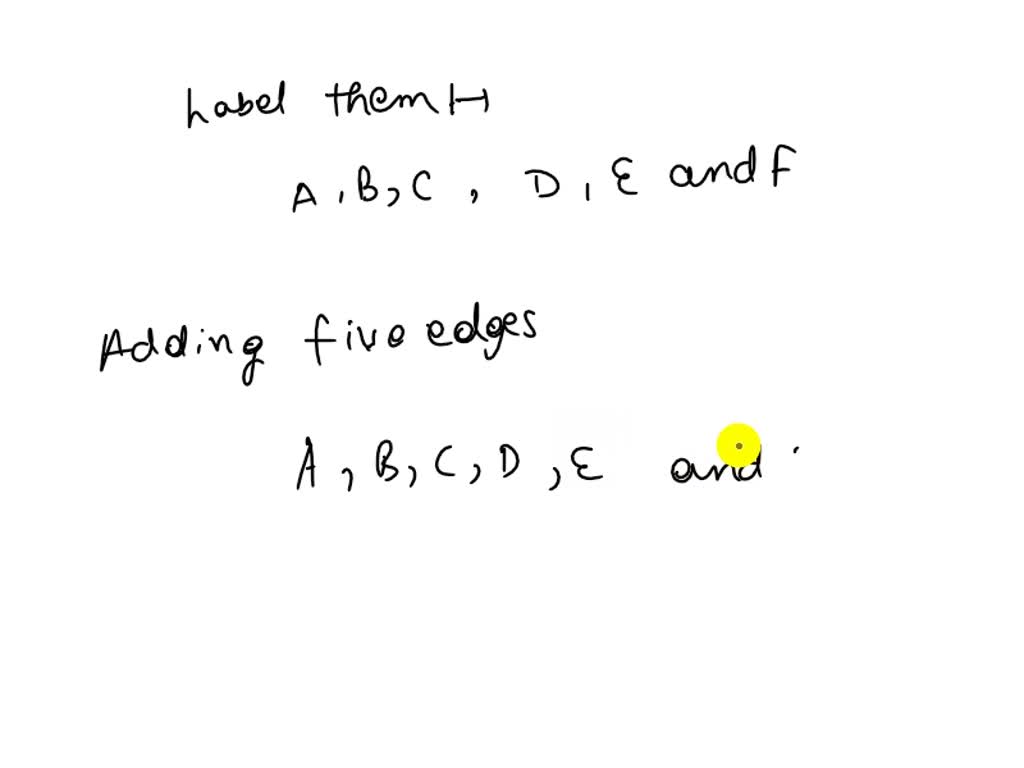 Label them :-
A, B, C, D, E and F
Adding five edges
A, B, C, D, E and